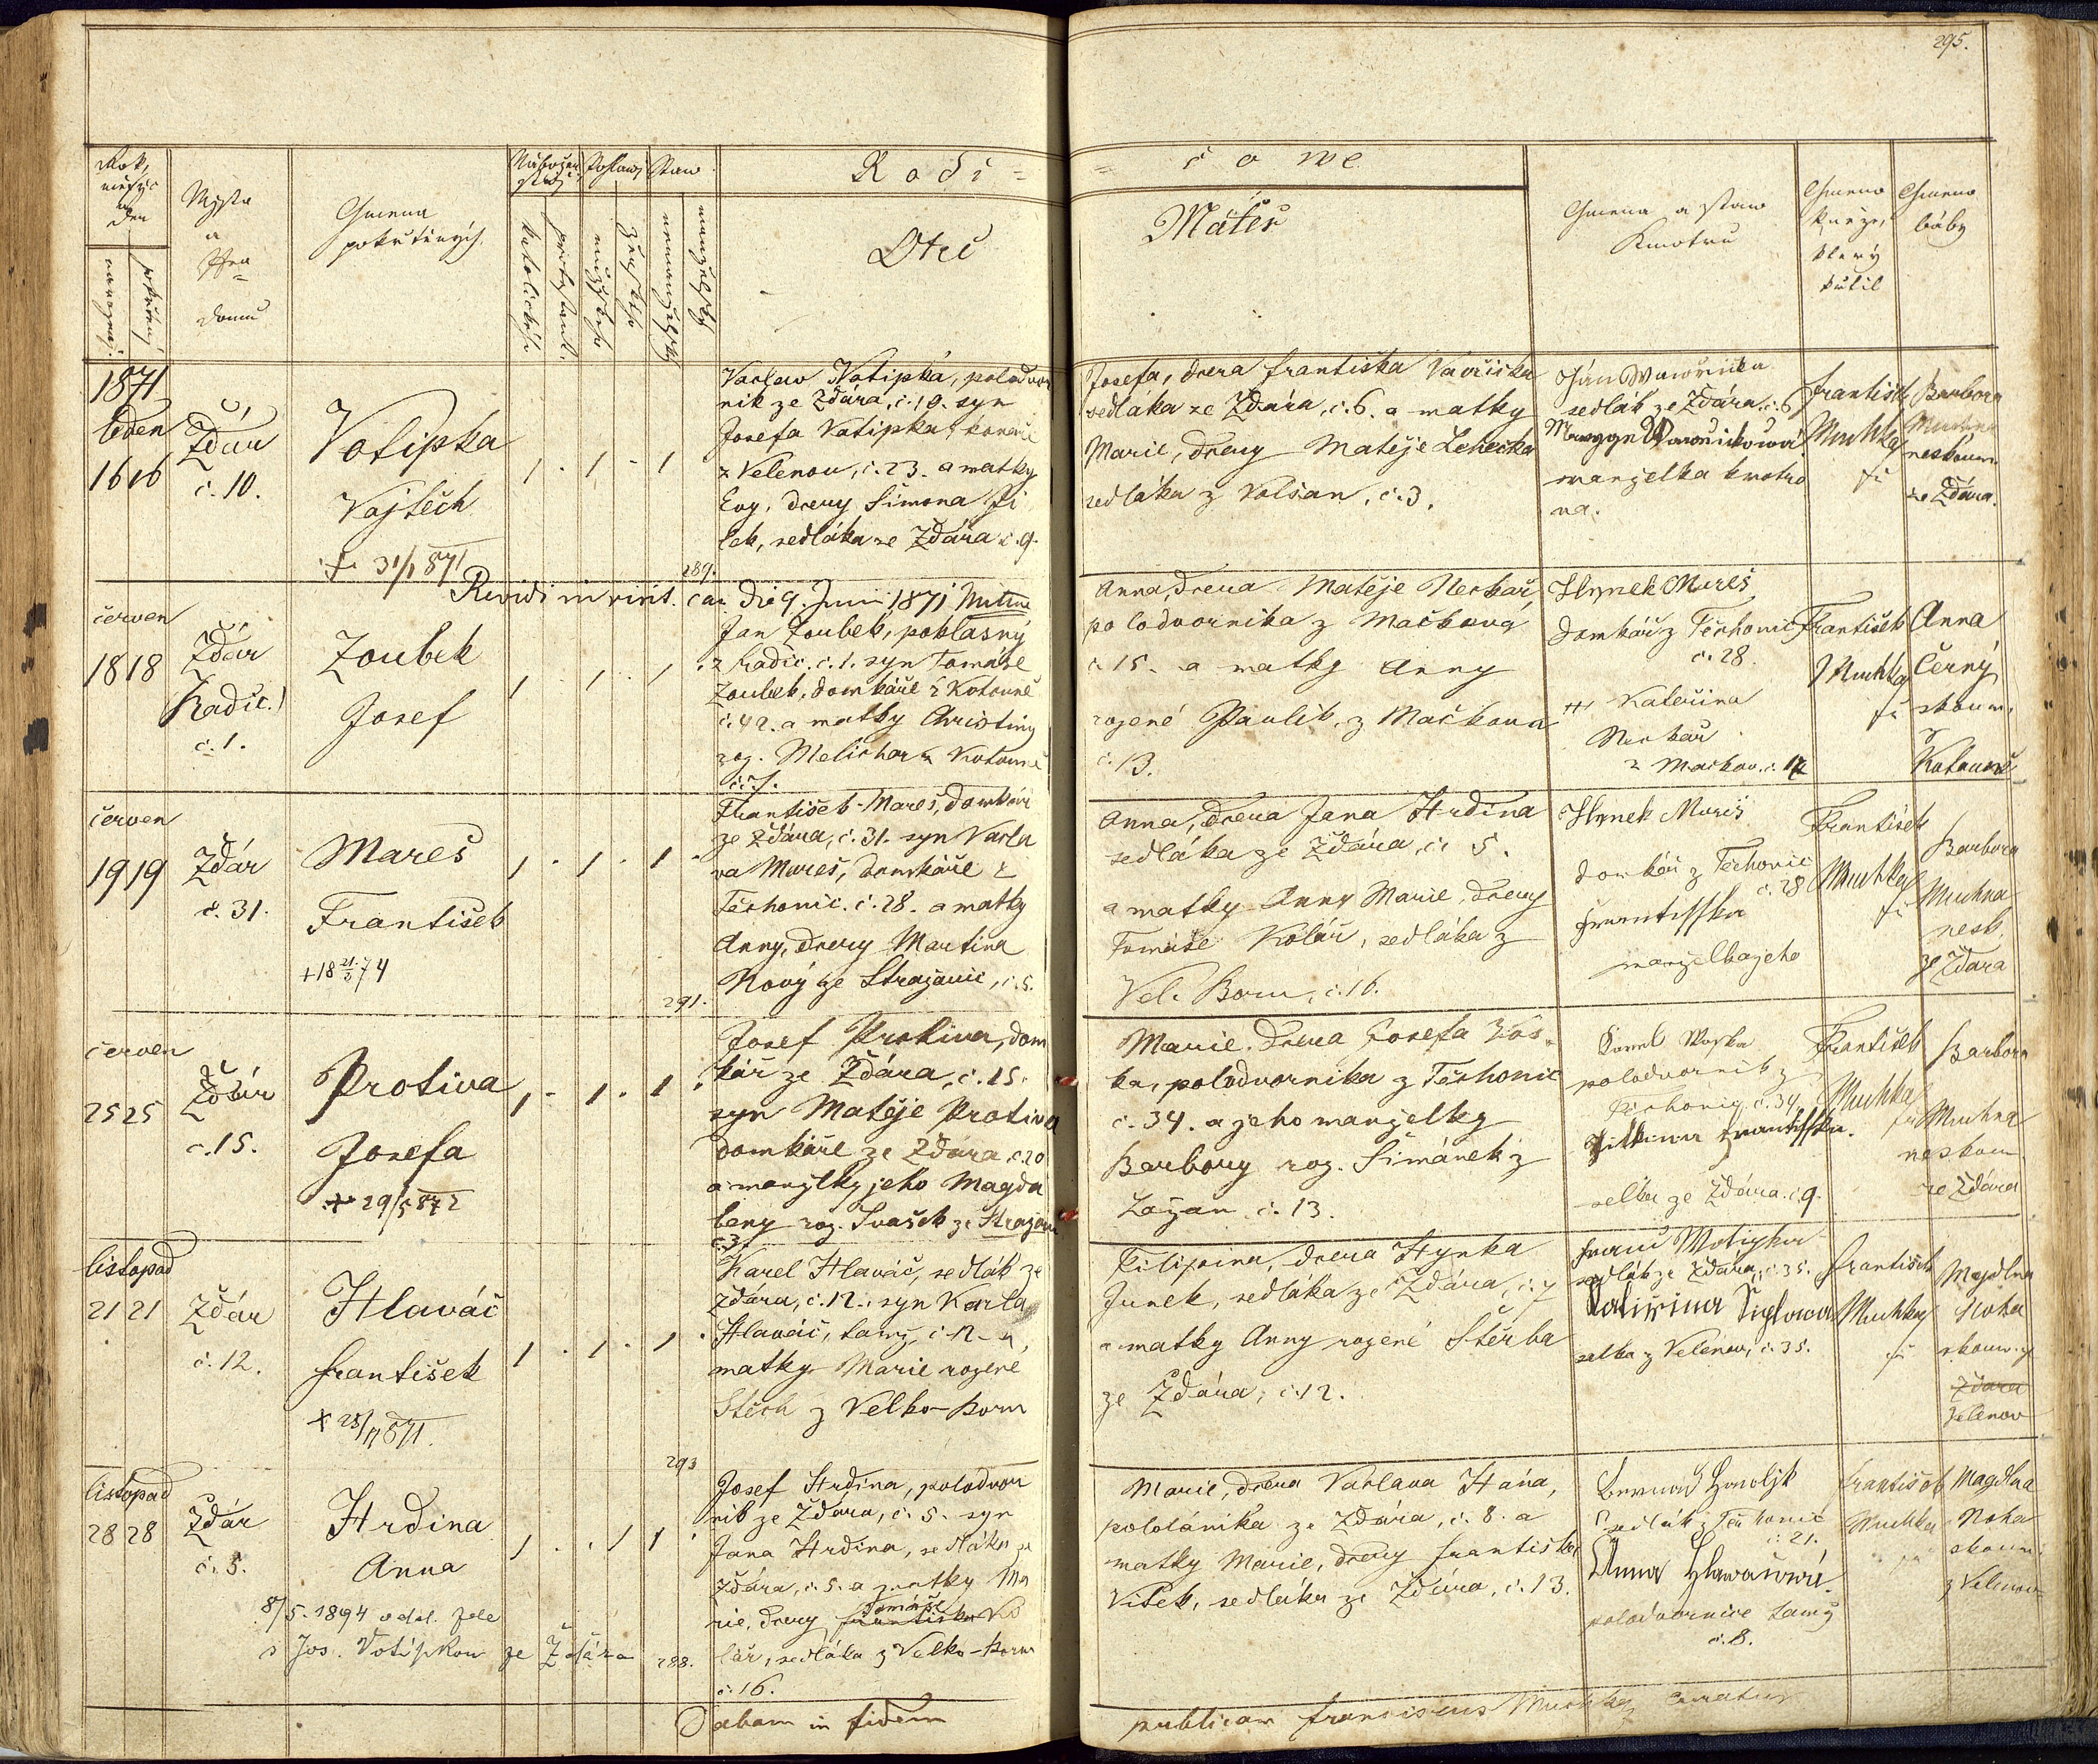 295.
Rodi=
=čowe
Otec
Máteř
Gmena
pokřtěných
Mjsta
a
domu
Gmena a staw
Kmotrů
Gmeno
kněze,
který
křtil
Gmeno
báby
1871
leden
16 16
Žďár
č. 10.
Votipka
Vojtěch
† 31/1 871
1 . 1 - 1
Václav Votipka, polodvor
ník ze Žďára, č. 10. syn
Josefa Votipka,
z Velenov, č. 23. a matky
Evy, dcery Šimona Ji
lek, sedláka ze Žďára č. 9.
289.
Josefa, dcera Františka Vavřička
sedláka ze Žďára, č. 6. a matky
Marie, dcery Matěje
sedláka z Volšan, č. 3.
Ján Wawřička
sedlák ze Žďára č. 6
Wawřičkowá
manželka kmotro
va.
František
Muchka
fr
Barbora
Muchna
neskoum.
ze Žďára.
Revidi in visit. can. die 9. Junii 1871
červen
18 18
Žďár
(Radič.)
č. 1.
Zoubek
Josef
1 . 1 . 1 .
Jan Zoubek, pohlasný
z Radič. č. 1. syn Tomáše
Zoubek, domkáře z Kotouně
č. 42. a matky Christiny
roz. Melichar z Kotouně
č. 7.
Anna, dcera Matěje Neckař,
polodvorníka z Mačkova
č. 15. a matky Anny
rozené Paulík, z Mačkova
č. 13.
Hynek Mareš
domkář z Těchonic
č. 28.
Kateřina
Neckař
z Mačkov. č. 12
František
Muchka
fr
Anna
Černý
skoum.
z
Kotouně
červen
19 19
Žďár
č. 31.
Mareš
František
+ 18 21/3 74
1 . 1 . 1 .
František Mareš, domkář
ze Žďára, č. 31. syn Václa
va Mareš, domkáře z
Těchonic. č. 28. a matky
Anny, dcery Martina
Nový ze Stražovic, č. 5.
291.
Anna, dcera Jana Hrdina
sedláka ze Žďára, č. 5.
a matky Anny Marie, dcery
Tomáše Kolář, sedláka z
Vel. Boru, č. 16.
Hynek Mareš
domkář z Těchonic
č. 28
Frantisska
manželka jeho
František
Muchka
fr
Barbora
Muchna
nesk.
ze Žďára
červen
25 25
Žďár
č. 15.
Protiva
Josefa
+ 29/5 872
1 - 1 . 1 .
Josef Protiva, dom
kář ze Žďára, č. 15.
syn Matěje Protiva
domkáře ze Žďára, č. 20
a manželky jeho Magda
leny roz. Ivašek ze
č. 3.
Marie, dcera Josefa Vos-
ka, polodvorníka z Těchonic
č. 34. a jeho manželky
Barbory roz. Šimánek z
Zavžan č. 13.
Karel Woska
polodvorník z
Těchonic, č. 34
Frantisska.
selka ze Žďára č. 9.
František
Muchka
fr
Barbora
Muchna
neskoum.
ze Žďára
listopad
21 21
Žďár
č. 12.
Hlaváč
František
+ 25/11 871.
1 . 1 . 1 .
Karel Hlaváč, sedlák ze
Žďára, č. 12., syn Karla
Hlaváč, tamž č. 12 - a
matky Marie rozené
Štěch z Velko-Boru
293
Filipina, dcera Hynka
Junek, sedláka ze Žďára, č. 7
a matky Anny rozené Štěrba
ze Žďára, č. 12.
Franc Wotipka
sedlák ze Žďára, č. 35.
selka z Velenov, č. 35.
František
Muchka
fr
Magdlna
Noha
skoum. z
Žďára
Velenov
listopad
28 28
Žďár
č. 5.
Hrdina
Anna
8/5. 1894 odd. zde
s Jos. Votípkou ze Žďára
1 . . 1 1 .
Josef Hrdina, polodvor
ník ze Žďára, č. 5. syn
Jana Hrdina, sedláka ze
Žďára, č. 5. a matky Ma
rie, dcery Františka Tomáše Ko
lář, sedláka z Velko-Boru
č. 16.
288.
Marie, dcera Václava Hána,
pololáníka ze Žďára, č. 8. a
matky Marie, dcery Františka
Vítek, sedláka ze Žďára, č. 13.
Bernard
sedlák z Těchonic
č. 21.
Anna Hlawačowá.
polodvornice tamž
č. 8.
František
Muchka
fr
Magdlna
Noha
skoum.
z Velenov
Dabam in fidem
publicam Franciscus Muchka, Curatus